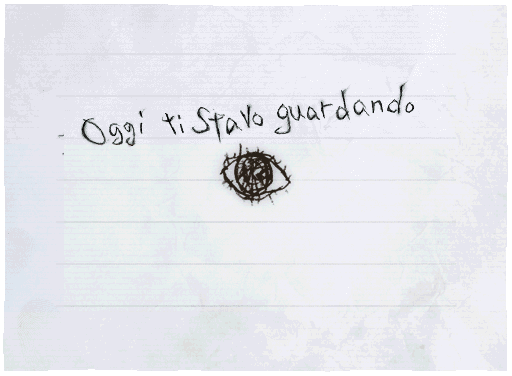 Oggi ti stavo guardando